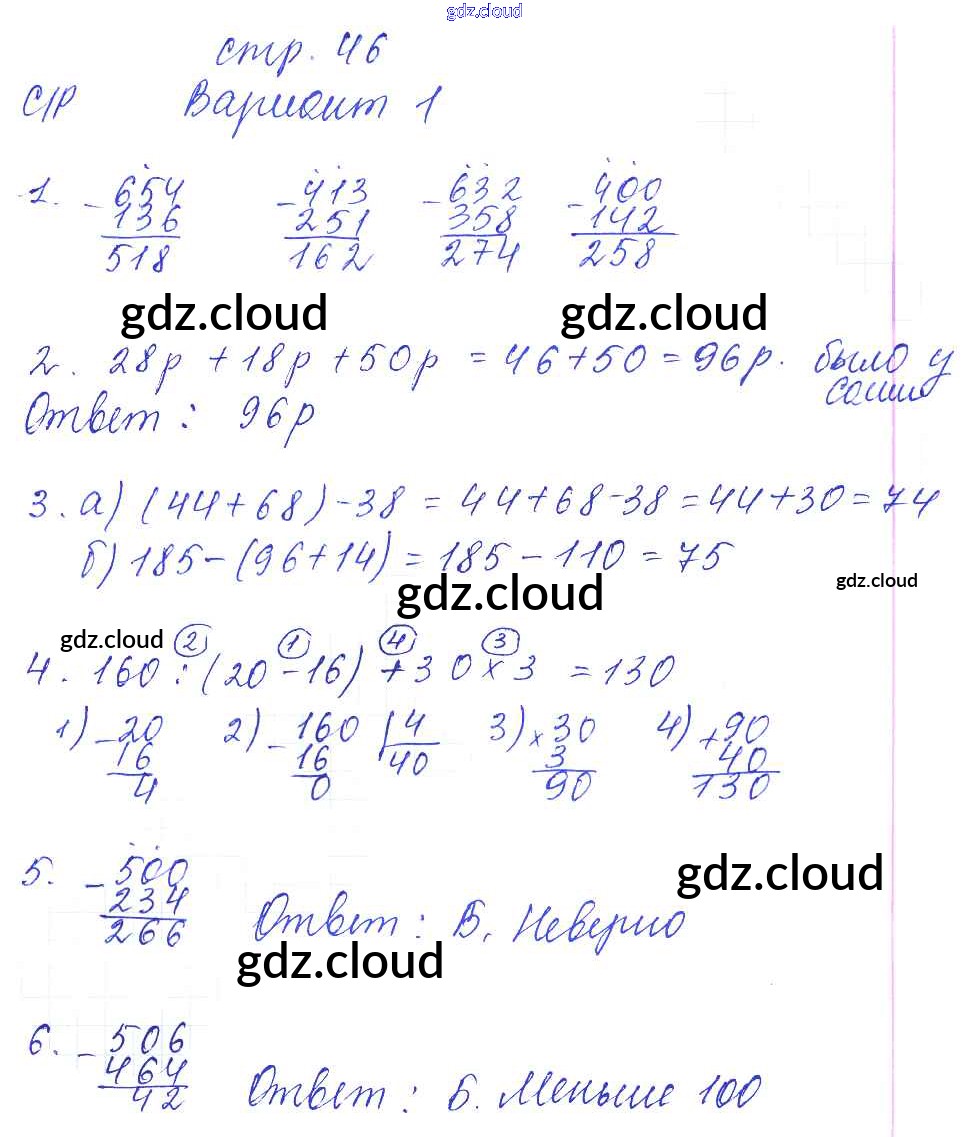 gdz.cloud
стр. 46
С/Р Вариант 1
1. - 654 - 413 - 632 - 400
136 251 358 142
518 162 274 258
gdz.cloud gdz.cloud
2. 28р + 18р + 50р = 46 + 50 = 96р. было у
Саши
Ответ: 96р
3. а) (44 + 68) - 38 = 44 + 68 - 38 = 44 + 30 = 74
б) 185 - (96 + 14) = 185 - 110 = 75
gdz.cloud gdz.cloud
gdz.cloud 2 1 4 3
4. 160 : (20 - 16) + 30 × 3 = 130
1) - 20 2) - 160 | 4 3) × 30 4) + 90
16 16 40 3 40
4 0 90 130
5. - 500 gdz.cloud
234
266 Ответ: Б. Неверно
gdz.cloud
6. - 506
464
42 Ответ: Б. Меньше 100